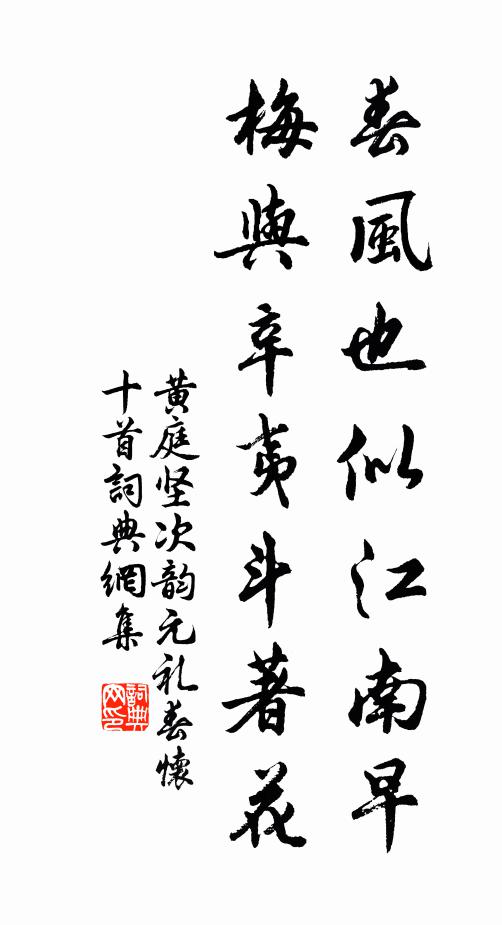 春風也似江南早
梅與辛夷斗著花
黄庭坚次韵元礼春懷
十首詞典網集
詞典网印